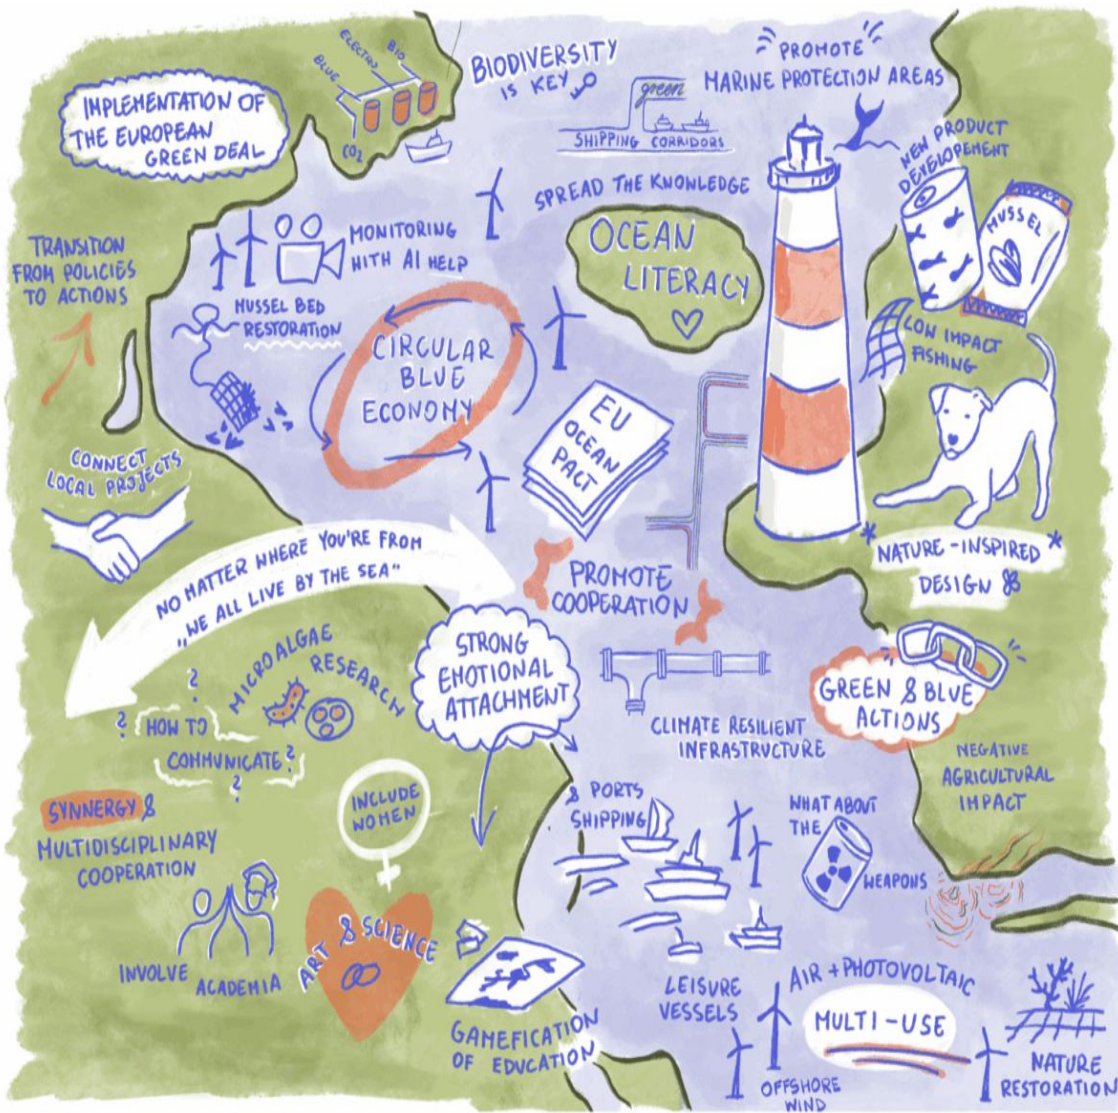 IMPLEMENTATION OF
THE EUROPEAN
GREEN DEAL
BLUE
ELECTRO
BIO
CO2
BIODIVERSITY
IS KEY
green
SHIPPING CORRIDORS
"PROMOTE"
MARINE PROTECTION AREAS
NEW PRODUCT
DEVELOPEMENT
MUSSEL
SPREAD THE KNOWLEDGE
OCEAN
LITERACY
TRANSITION
FROM POLICIES
TO ACTIONS
MONITORING
WITH AI HELP
MUSSEL BED
RESTORATION
CIRCULAR
BLUE
ECONOMY
LOW IMPACT
FISHING
EU
OCEAN
PACT
CONNECT
LOCAL PROJECTS
NO MATTER WHERE YOU'RE FROM
„WE ALL LIVE BY THE SEA"
PROMOTE
COOPERATION
* NATURE-INSPIRED *
DESIGN &
STRONG
EMOTIONAL
ATTACHMENT
GREEN & BLUE
ACTIONS
MICROALGAE
RESEARCH
?
? HOW TO
COMMUNICATE?
?
CLIMATE RESILIENT
INFRASTRUCTURE
NEGATIVE
AGRICULTURAL
IMPACT
SYNNERGY &
MULTIDISCIPLINARY
COOPERATION
INCLUDE
WOMEN
& PORTS
SHIPPING
WHAT ABOUT
THE
WEAPONS
INVOLVE
ACADEMIA
ART & SCIENCE
GAMEFICATION
OF EDUCATION
LEISURE
VESSELS
AIR + PHOTOVOLTAIC
MULTI-USE
OFFSHORE
WIND
NATURE
RESTORATION